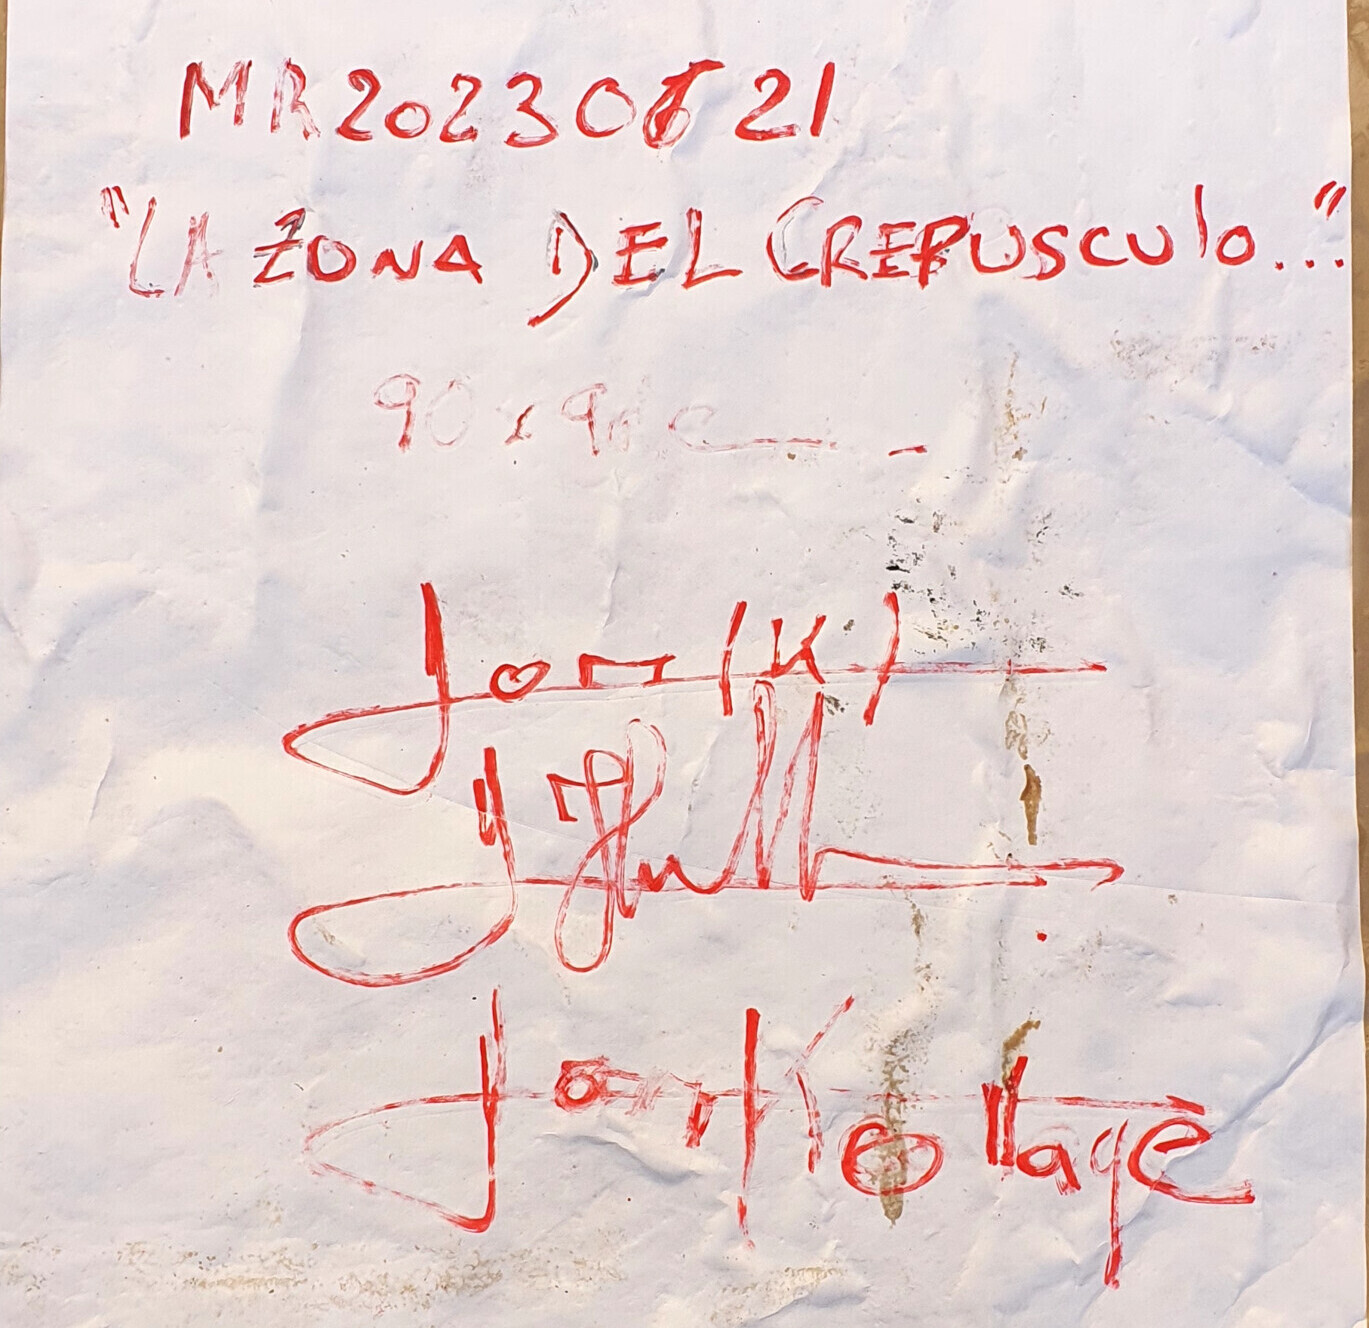 MR20230621
"LA ZONA DEL CREPUSCULO..."
90 x 90 c
Jon (K)
Jon Kollage